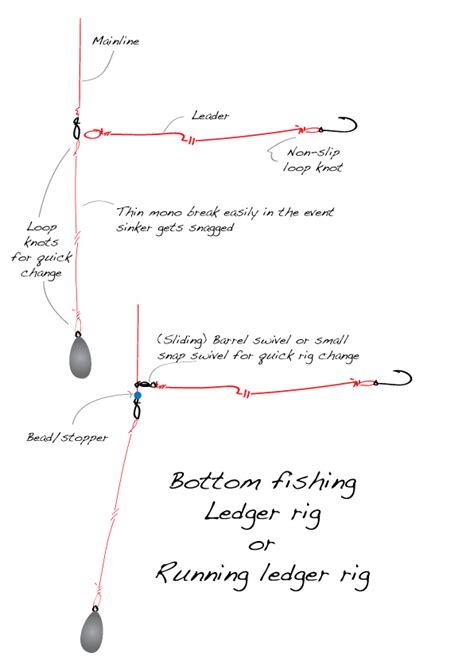 Mainline
Leader
Non-slip
loop knot
Loop
knots
for quick
change
Thin mono break easily in the event
sinker gets snagged
(Sliding) Barrel swivel or small
snap swivel for quick rig change
Bead/stopper
Bottom fishing
Ledger rig
or
Running ledger rig